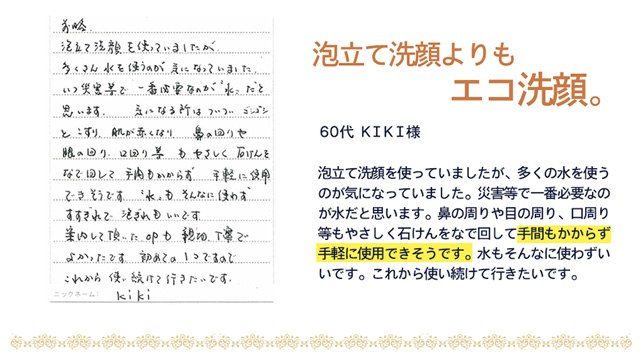 前略
泡立て洗顔を使っていましたが、
多くさん水を使うのが気になっていました。
いつ災害等で一番必要なのが"水"だと
思います。 気になる所はついつい ゴシゴシ
とこすり、肌が赤くなり、鼻の回りや
眼の回り、口回り等 もやさしく石けんを
なで回して 手間もかからず 手軽に使用
できそうです。"水"も そんなに使わず
すすぎれて 泡ぎれもいいです
案内して頂いたopも 親切、丁寧で
よかったです。初めての1コですので
これから 使い続けて行きたいです。
ニックネーム: kiki
泡立て洗顔よりも
エコ洗顔。
60代 KIKI様
泡立て洗顔を使っていましたが、多くの水を使う
のが気になっていました。災害等で一番必要なの
が水だと思います。鼻の周りや目の周り、口周り
等もやさしく石けんをなで回して手間もかからず
手軽に使用できそうです。水もそんなに使わずい
いです。これから使い続けて行きたいです。